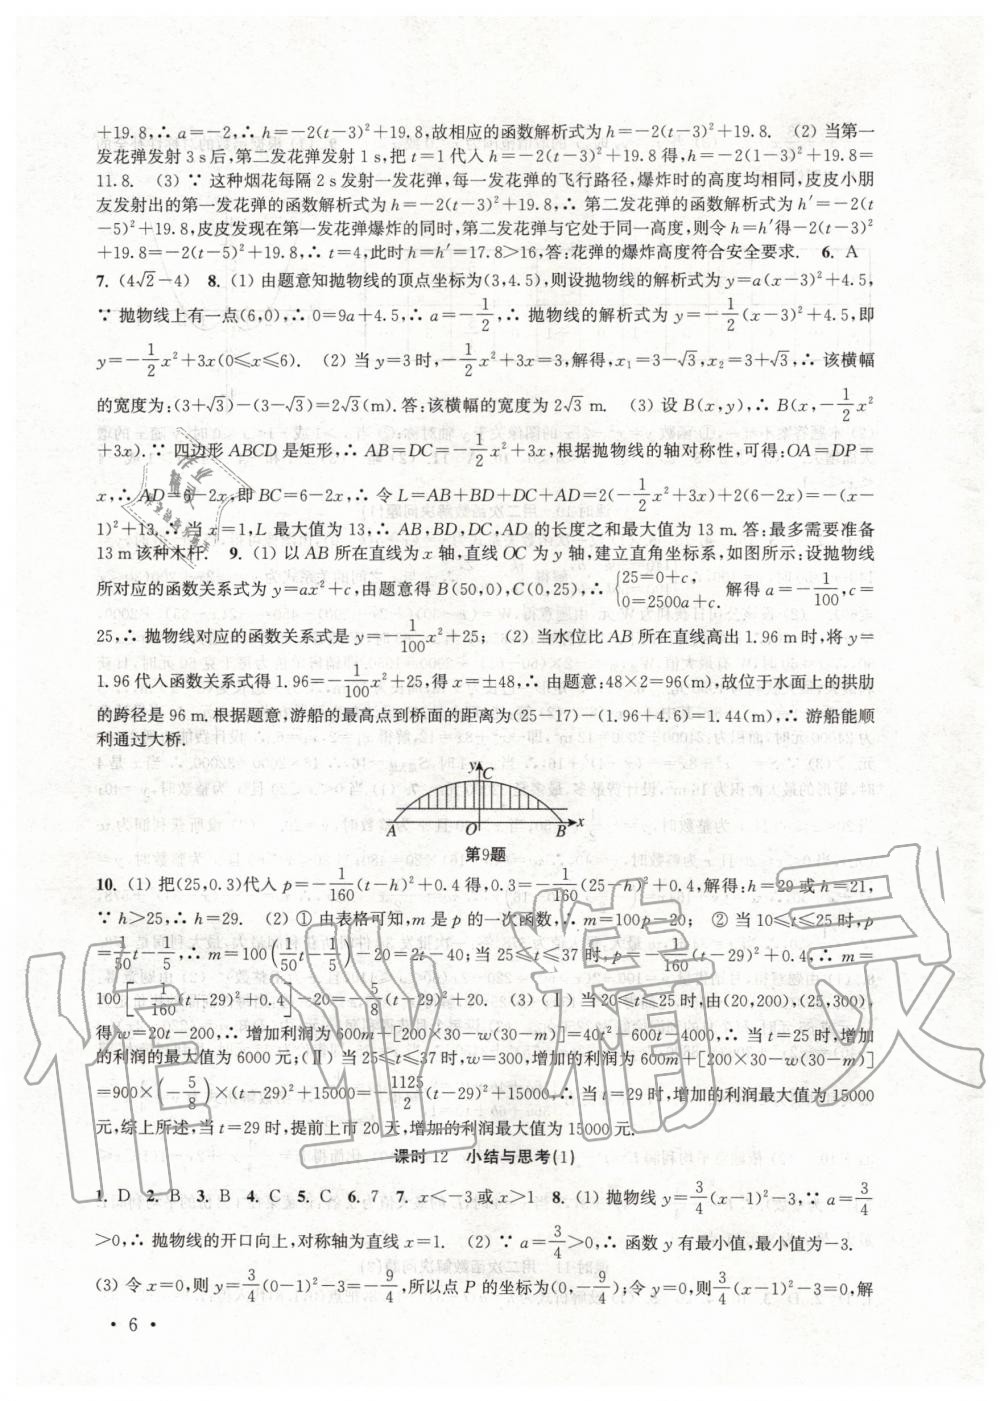 +19.8,∴ a=-2,∴ h=-2(t-3)²+19.8,故相应的函数解析式为 h=-2(t-3)²+19.8. (2) 当第一
发花弹发射 3 s后,第二发花弹发射 1 s,把 t=1 代入 h=-2(t-3)²+19.8,h=-2(1-3)²+19.8=
11.8. (3) ∵ 这种烟花每隔 2 s发射一发花弹,每一发花弹的飞行路径,爆炸时的高度均相同,皮皮小朋
友发射出的第一发花弹的函数解析式为 h=-2(t-3)²+19.8,∴ 第二发花弹的函数解析式为 h′=-2(t
-5)²+19.8,皮皮发现在第一发花弹爆炸的同时,第二发花弹与它处于同一高度,则令 h=h′得-2(t-3)²
+19.8=-2(t-5)²+19.8,∴ t=4,此时 h=h′=17.8>16,答:花弹的爆炸高度符合安全要求. 6. A
7. (4√2-4) 8. (1) 由题意知抛物线的顶点坐标为(3,4.5),则设抛物线的解析式为 y=a(x-3)²+4.5,
∵ 抛物线上有一点(6,0),∴ 0=9a+4.5,∴ a=-1/2,∴ 抛物线的解析式为 y=-1/2(x-3)²+4.5,即
y=-1/2x²+3x(0≤x≤6). (2) 当 y=3 时,-1/2x²+3x=3,解得,x₁=3-√3,x₂=3+√3,∴ 该横幅
的宽度为:(3+√3)-(3-√3)=2√3(m).答:该横幅的宽度为 2√3 m. (3) 设 B(x,y),∴ B(x,-1/2x²
+3x).∵ 四边形 ABCD 是矩形,∴ AB=DC=-1/2x²+3x,根据抛物线的轴对称性,可得:OA=DP=
x,∴ AD=6-2x,即 BC=6-2x,∴ 令 L=AB+BD+DC+AD=2(-1/2x²+3x)+2(6-2x)=-(x-
1)²+13.∴ 当 x=1,L 最大值为 13,∴ AB,BD,DC,AD 的长度之和最大值为 13 m.答:最多需要准备
13 m该种木杆. 9. (1) 以 AB 所在直线为 x 轴,直线 OC 为 y 轴,建立直角坐标系,如图所示:设抛物线
所对应的函数关系式为 y=ax²+c,由题意得 B(50,0),C(0,25),∴ {25=0+c, 0=2500a+c. 解得 a=-1/100,c=
25,∴ 抛物线对应的函数关系式是 y=-1/100x²+25; (2) 当水位比 AB 所在直线高出 1.96 m时,将 y=
1.96代入函数关系式得 1.96=-1/100x²+25,得 x=±48,∴ 由题意:48×2=96(m),故位于水面上的拱肋
的跨径是 96 m.根据题意,游船的最高点到桥面的距离为(25-17)-(1.96+4.6)=1.44(m),∴ 游船能顺
利通过大桥.
y C
A O B x
第9题
10. (1) 把(25,0.3)代入 p=-1/160(t-h)²+0.4 得,0.3=-1/160(25-h)²+0.4,解得:h=29 或 h=21,
∵ h>25,∴ h=29. (2) ① 由表格可知,m 是 p 的一次函数,∴ m=100p-20; ② 当 10≤t≤25 时,p
=1/50t-1/5,∴ m=100(1/50t-1/5)-20=2t-40;当 25≤t≤37 时,p=-1/160(t-29)²+0.4,∴ m=
100[-1/160(t-29)²+0.4]-20=-5/8(t-29)²+20. (3) (Ⅰ) 当 20≤t≤25 时,由(20,200),(25,300),
得 w=20t-200,∴ 增加利润为 600m+[200×30-w(30-m)]=40t²-600t-4000,∴ 当 t=25 时,增加
的利润的最大值为 6000 元;(Ⅱ) 当 25≤t≤37 时,w=300,增加的利润为 600m+[200×30-w(30-m)]
=900×(-5/8)×(t-29)²+15000=-1125/2(t-29)²+15000,∴ 当 t=29 时,增加的利润最大值为 15000
元,综上所述,当 t=29 时,提前上市 20天,增加的利润最大值为 15000元.
课时 12 小结与思考(1)
1. D 2. B 3. B 4. C 5. C 6. 7 7. x<-3 或 x>1 8. (1) 抛物线 y=3/4(x-1)²-3,∵ a=3/4
>0,∴ 抛物线的开口向上,对称轴为直线 x=1. (2) ∵ a=3/4>0,∴ 函数 y 有最小值,最小值为-3.
(3) 令 x=0,则 y=3/4(0-1)²-3=-9/4,所以点 P 的坐标为(0,-9/4),令 y=0,则3/4(x-1)²-3=0,解
• 6 •
作业精灵